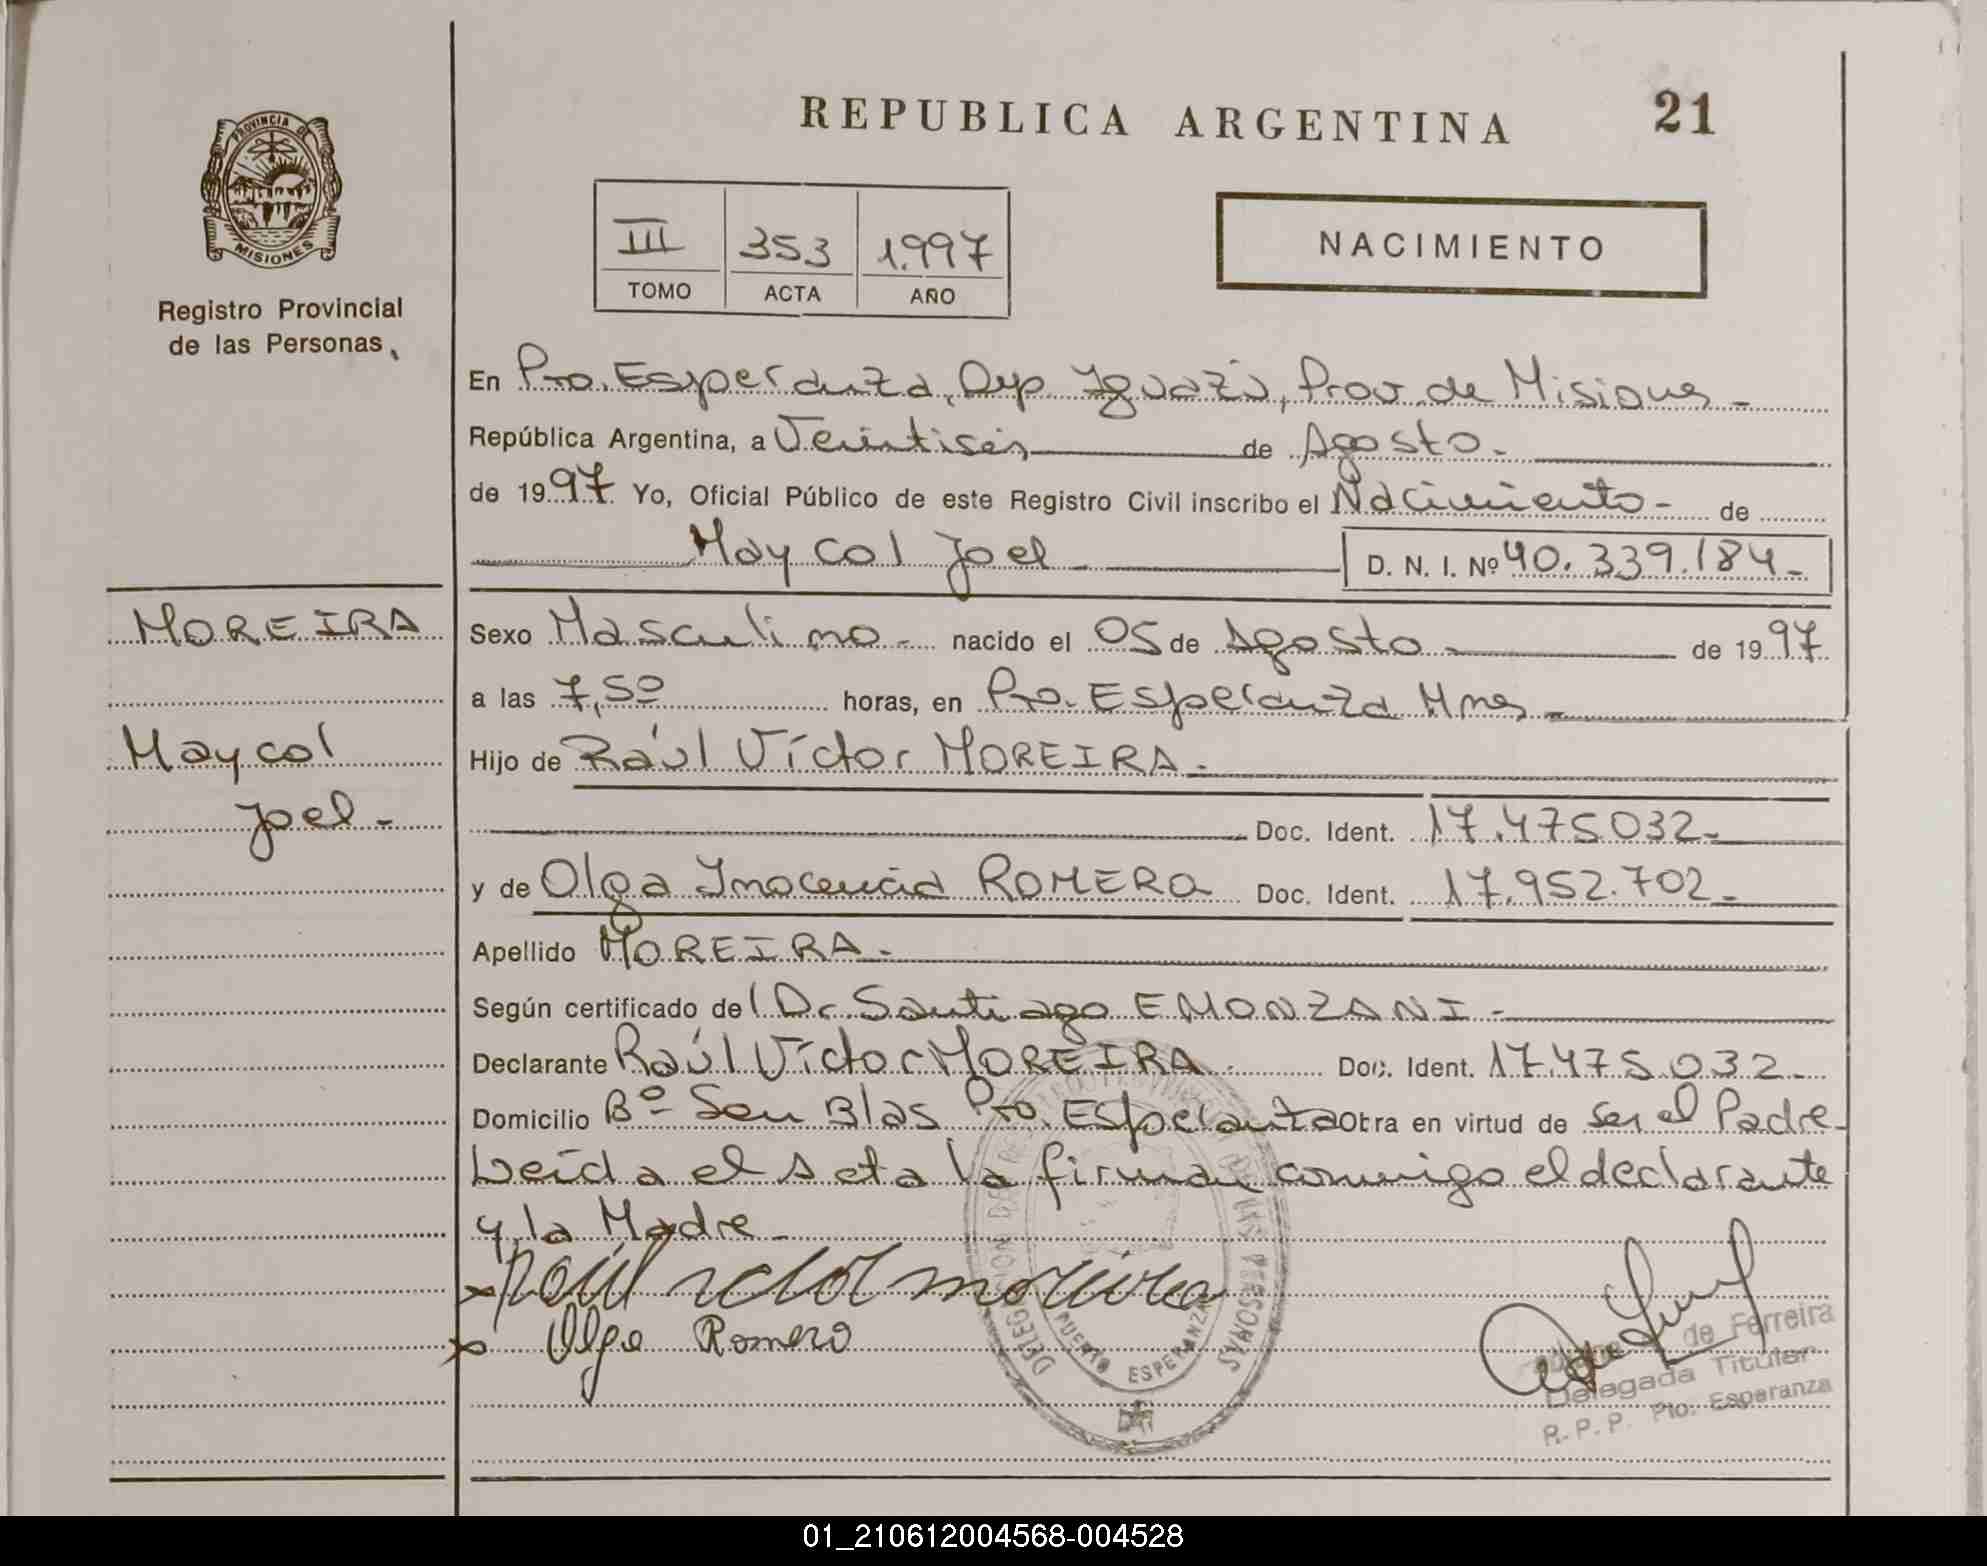 REPUBLICA ARGENTINA 21
PROVINCIA DE
MISIONES
Registro Provincial
de las Personas
III 353 1.997
TOMO ACTA AÑO
NACIMIENTO
En Pto. Esperanza, Dep. Iguazú, Prov. de Misiones -
República Argentina, a Veintiseis de Agosto.
de 1997. Yo, Oficial Público de este Registro Civil inscribo el Nacimiento - de
Maycol Joel D. N. I. Nº 40.339.184-
MOREIRA
Maycol
Joel -
Sexo Masculino - nacido el 05 de Agosto de 1997
a las 7,50 horas, en Pto. Esperanza Mnes -
Hijo de Raúl Víctor MOREIRA.
Doc. Ident. 17.475.032-
y de Olga Inocencia ROMERO Doc. Ident. 17.952.702-
Apellido MOREIRA -
Según certificado del Dr Santiago E MONZANI -
Declarante Raúl Víctor MOREIRA Doc. Ident. 17.475.032-
Domicilio Bº San Blas Pto. Esperanza Obra en virtud de ser el Padre-
Leída el Acta la firman conmigo el declarante
y la Madre -
x Raúl Victor moreira
x Olga Romero
DELEGACION DE REGISTRO PROVINCIAL DE LAS PERSONAS
PUERTO ESPERANZA
de Ferreira
Delegada Titular
R. P. P. Pto. Esperanza
01_210612004568-004528